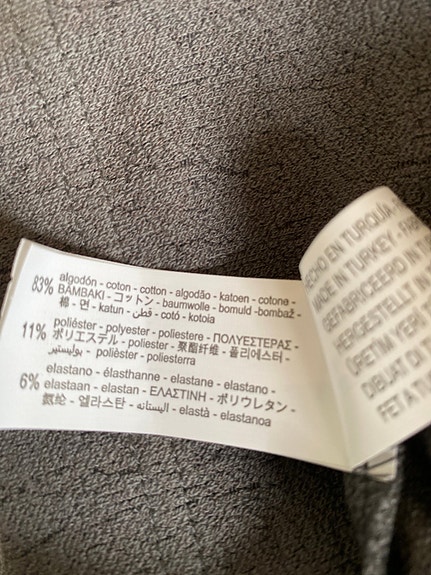 83% algodón - coton - cotton - algodão - katoen - cotone -
ΒΑΜΒΑΚΙ - コットン - baumwolle - bomuld - bombaž -
棉 - 면 - katun - قطن - cotó - kotoia
11% poliéster - polyester - poliestere - ΠΟΛΥΕΣΤΕΡΑΣ -
ポリエステル - poliester - 聚酯纤维 - 폴리에스터 -
بوليستير - polièster - poliesterra
6% elastano - élasthanne - elastane - elastano -
elastaan - elastan - ΕΛΑΣΤΙΝΗ - ポリウレタン -
氨纶 - 엘라스탄 - اليستانه - elastà - elastanoa
HECHO EN TURQUÍA -
MADE IN TURKEY -